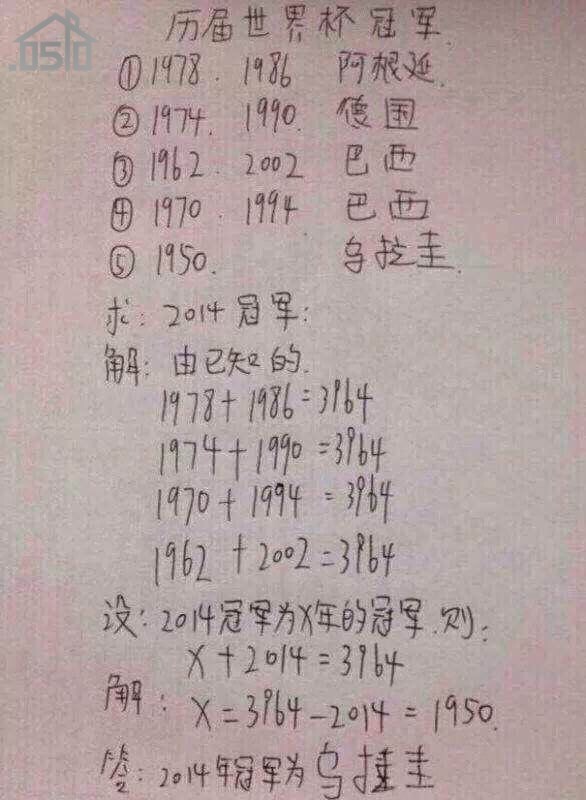 0510
历届世界杯冠军
①1978. 1986 阿根廷.
②1974. 1990. 德国
③1962. 2002 巴西
④1970. 1994 巴西
⑤1950. 乌拉圭.
求: 2014冠军:
解: 由已知的.
1978+1986=3964
1974+1990=3964
1970+1994=3964
1962+2002=3964
设: 2014冠军为X年的冠军.则:
X+2014=3964
解: X=3964-2014=1950.
答: 2014年冠军为乌拉圭